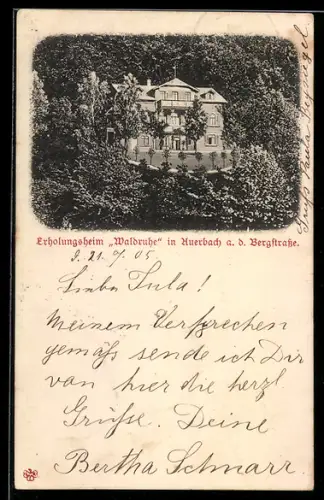 Erholungsheim „Waldruhe" in Auerbach a. d. Bergstraße.
d. 21. 7. 05
Liebe Jula!
Meinem Versprechen
gemäss sende ich Dir
von hier die herzl
Grüsse. Deine
Bertha Schnarr
Gruss